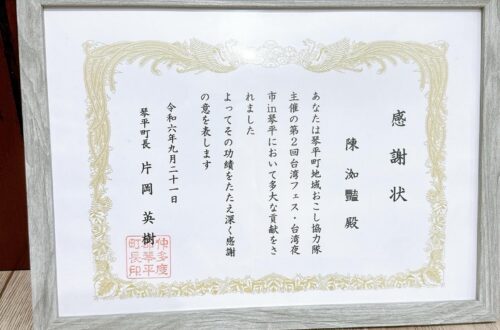 感謝状
陳泇豔殿
あなたは琴平町地域おこし協力隊
主催の第2回台湾フェス・台湾夜
市in琴平において多大な貢献をさ
れました
よってその功績をたたえ深く感謝
の意を表します
令和六年九月二十一日
琴平町長 片岡英樹
仲多度
郡琴平
町長印